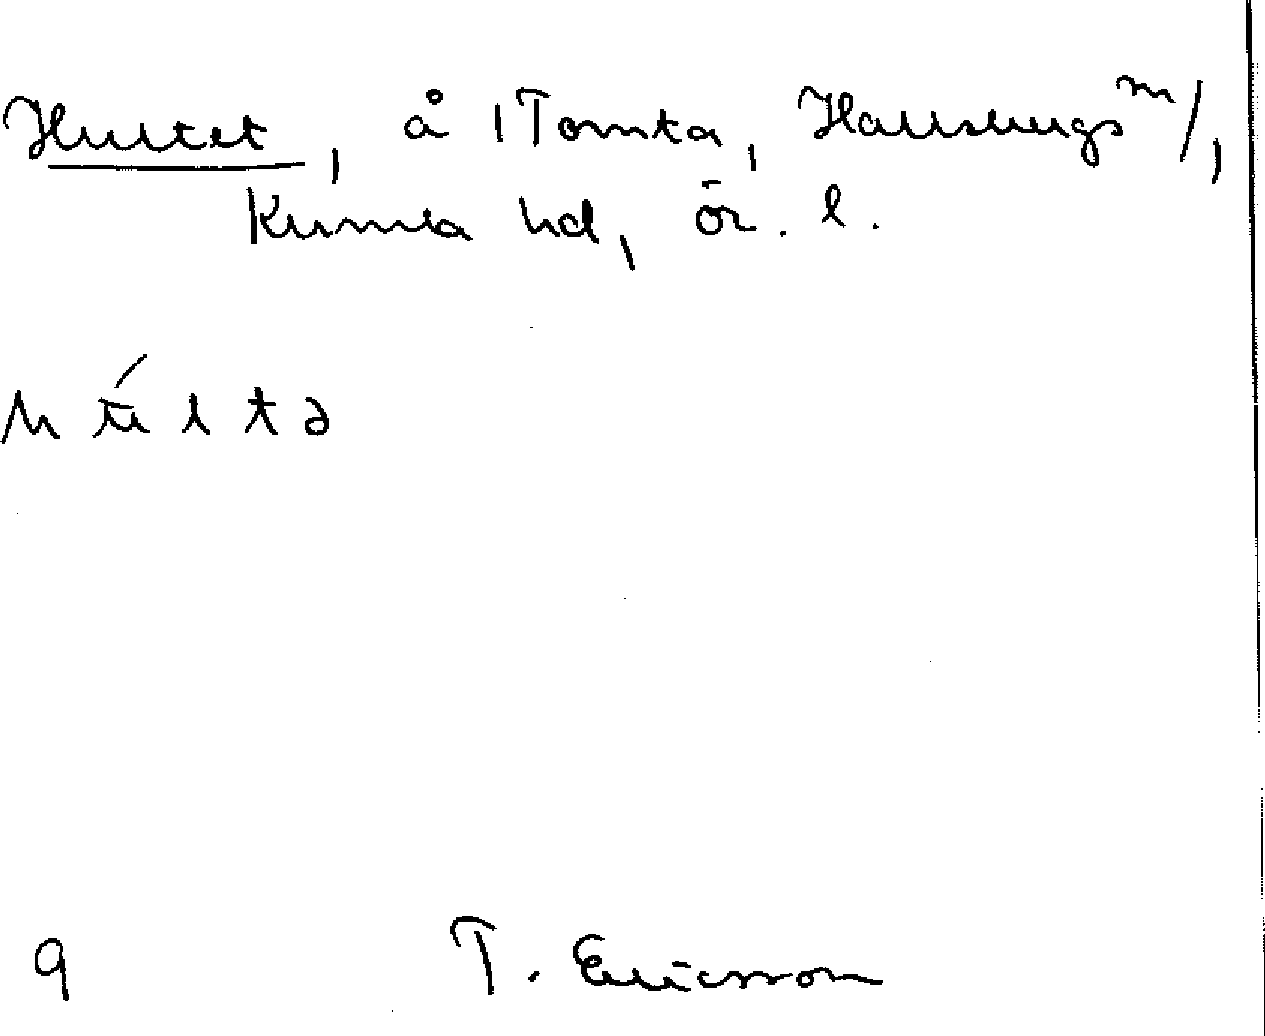 Hultet, å 1 Tomta, Hallsbergs m/,
Kumla hd, Ör. l.
9 T. Ericsson